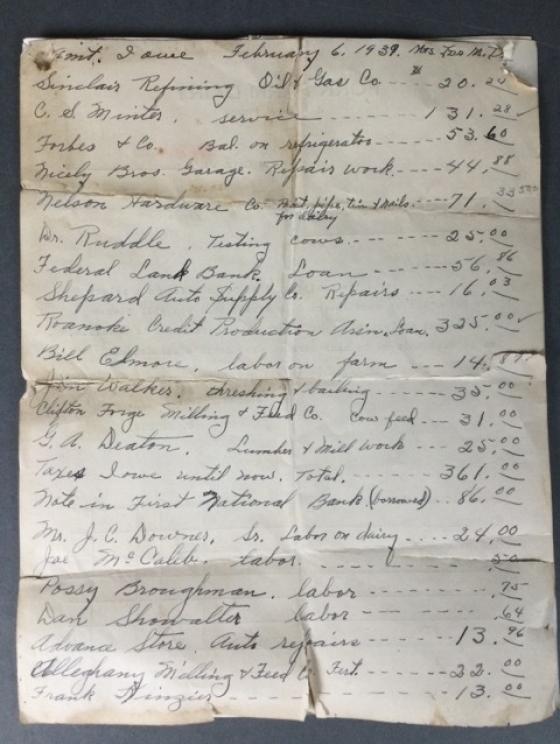 Amt. I owe February 6, 1939. Mrs.
Sinclair Refining Oil & Gas Co ---- $ 20.
C. S. Minter, service ------ 131.28
Forbes & Co. Bal. on refrigerator ---- 53.60
Nicely Bros. Garage. Repair work ---- 44.88
Nelson Hardware Co. Paint, pipe, tin & nails ---- 71.
for dairy
Dr. Ruddle, Testing cows ---- 25.00
Federal Land Bank, Loan ------ 56.86
Shepard Auto Supply Co. Repairs --- 16.03
Roanoke Credit Production Ass'n. Loan. 325.00
Bill Elmore, labor on farm --- 14.
Jim Walker, threshing & bailing ---- 35.00
Clifton Forge Milling & Feed Co. Cow feed --- 31.00
G. A. Deaton, Lumber & Mill work --- 25.00
Taxes I owe until now, Total. ------ 361.00
Note in First National Bank (borrowed) -- 86.00
Mr. J. C. Downer, Sr. Labor on dairy ---- 24.00
Joe McCaleb, labor. ---- .50
Possy Broughman, labor ------ .75
Dan Showalter labor ---- .64
Advance Store, Auto repairs ------ 13.96
Alleghany Milling & Feed Co Fert. ---- 22.00
Frank ------ 13.00